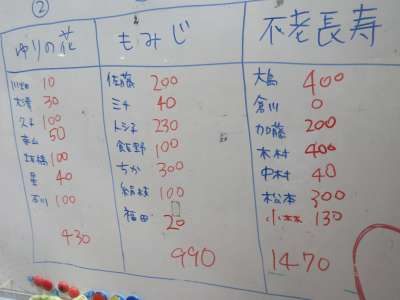 ②
ゆりの花
川畑 10
大澤 30
久子 100
東山 50
板橋 100
星 40
石川 100
430
もみじ
佐藤 200
ミチ 40
トシ子 230
飯野 100
ちか 300
絹枝 100
福田 20
990
不老長寿
大島 400
倉川 0
加藤 200
木村 400
中村 40
松本 300
小林 130
1470